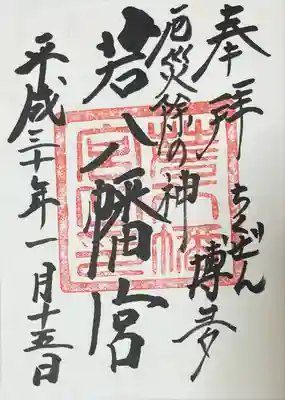 奉拝
ちくぜん
博多
厄災除の神
若八幡宮
平成三十年一月十五日